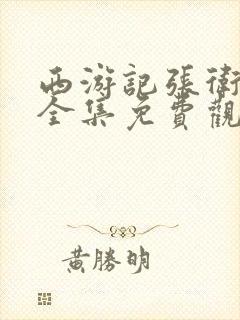 西游記張衛
全集免費觀
黃勝明